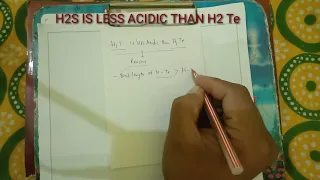 H2S IS LESS ACIDIC THAN H2 Te
H2S is less Acidic than H2Te
Reason
- Bond length of H-Te > H